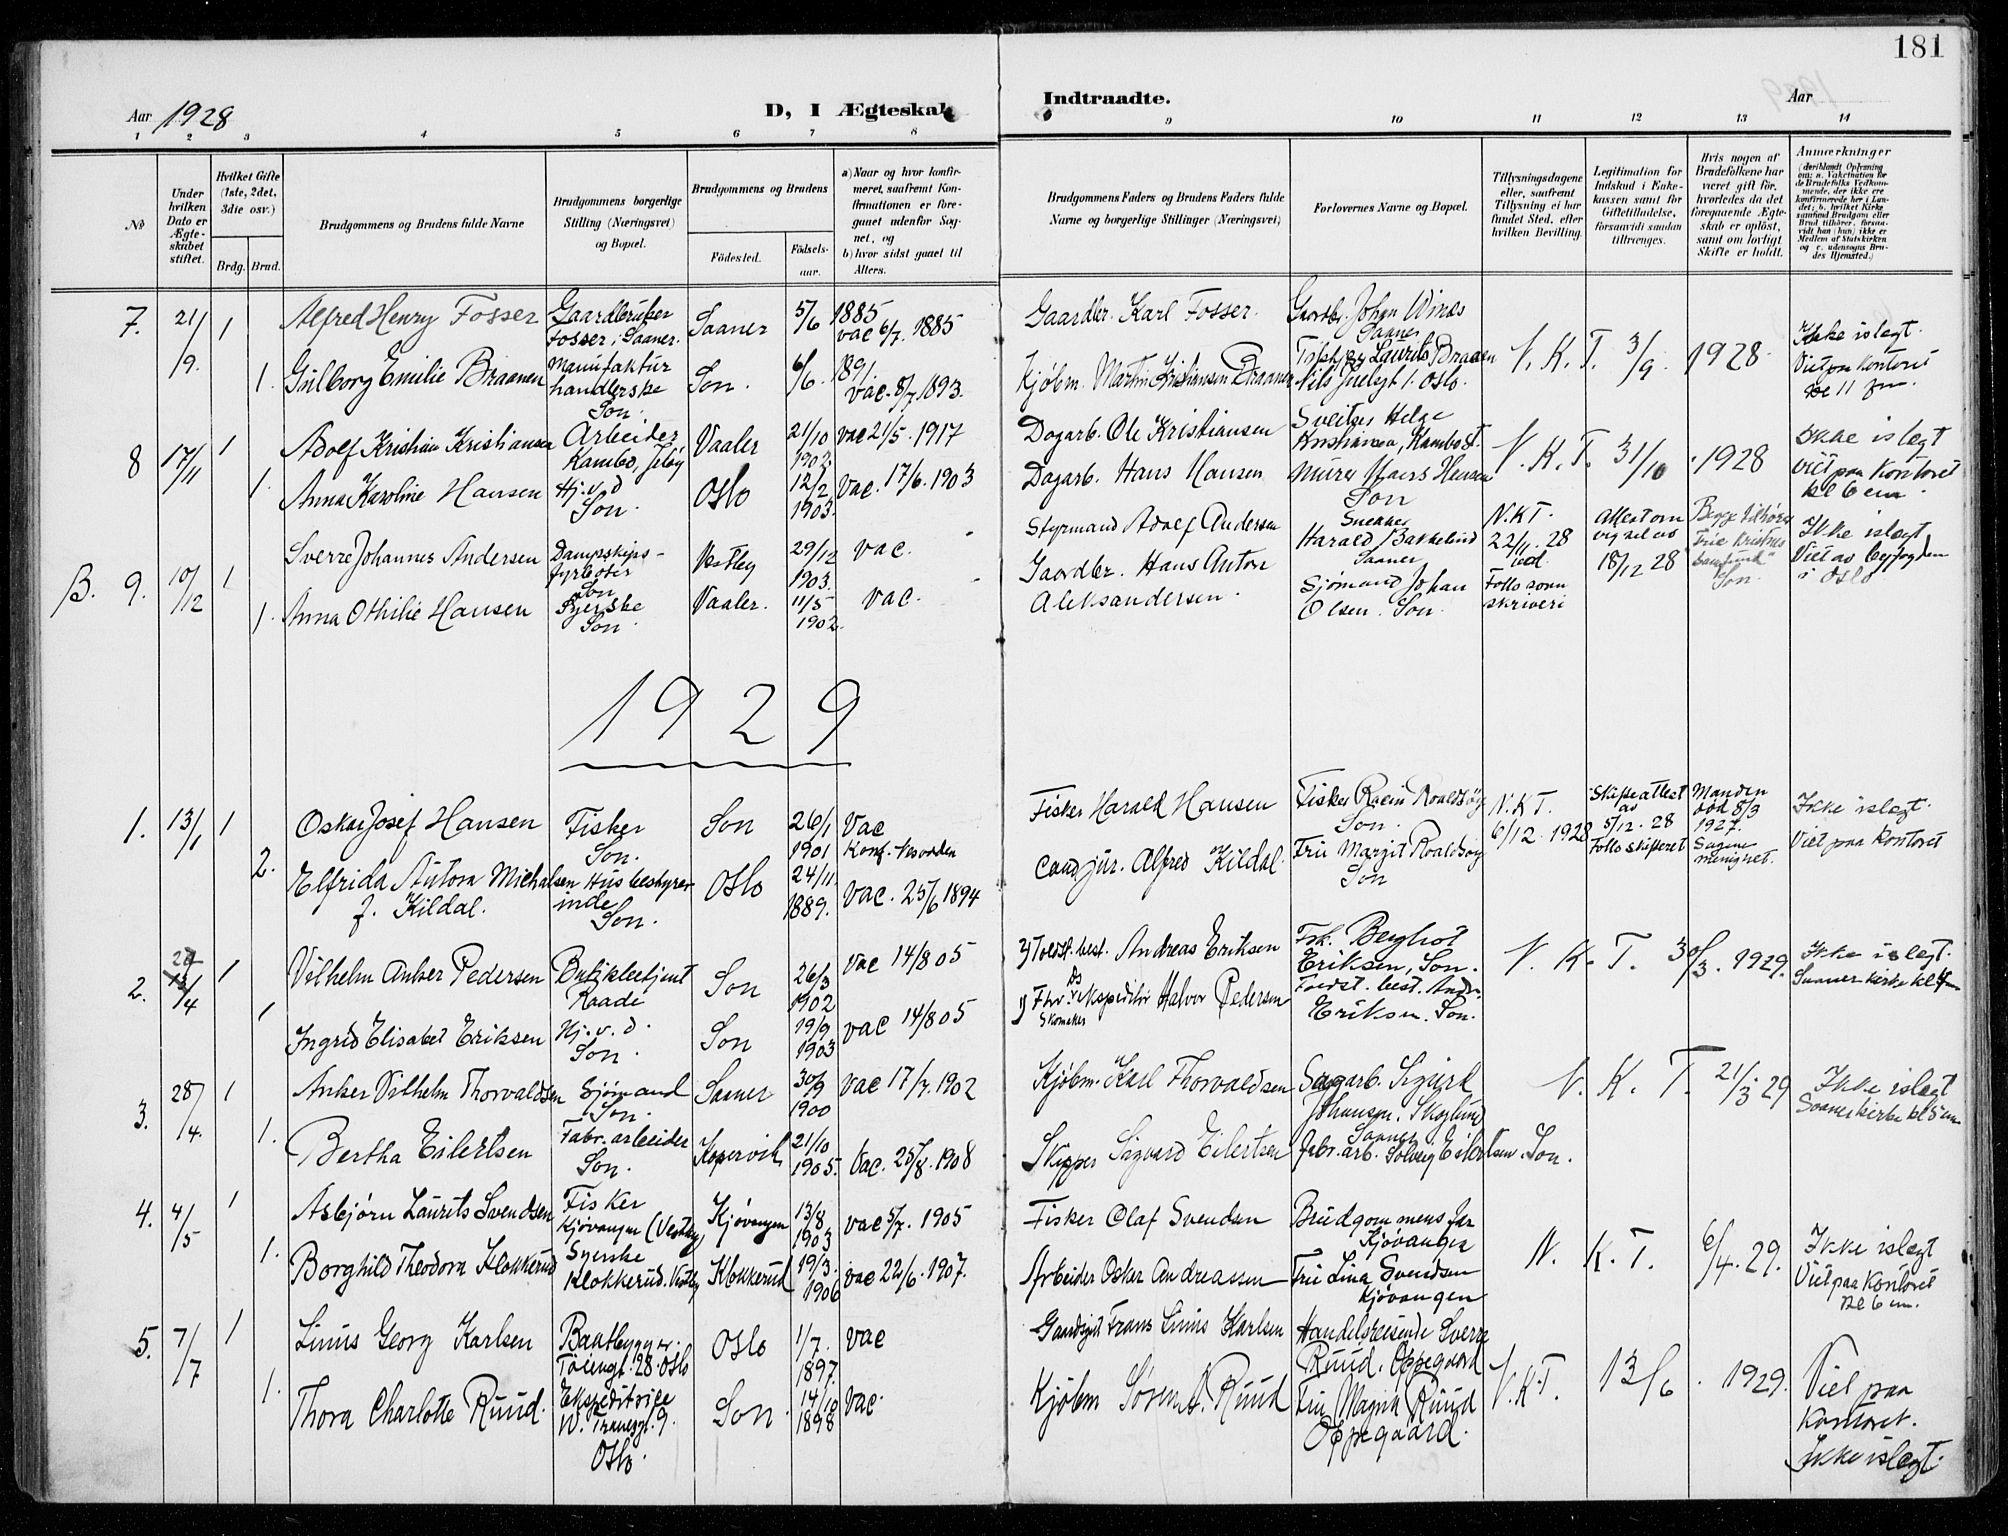 181
Aar 1928
D, I Ægteskab
Indtraadte.
Aar
1 2 3 4 5 6 7 8 9 10 11 12 13 14
No
Under hvilken Dato er Ægteskabet stiftet.
Hvilket Gifte (1ste, 2det, 3die osv.)
Brdg. Brud.
Brudgommens og Brudens fulde Navne
Brudgommens borgerlige Stilling (Næringsvei) og Bopæl.
Brudgommens og Brudens
Fødested.
Fødselsaar.
a) Naar og hvor konfirmeret, saafremt Konfirmationen er foregaaet udenfor Sognet, og
b) hvor sidst gaaet til Alters.
Brudgommens Faders og Brudens Faders fulde Navne og borgerlige Stillinger (Næringsvei)
Forlovernes Navne og Bopæl.
Tillysningsdagene eller, saafremt Tillysning ei har fundet Sted, efter hvilken Bevilling.
Legitimation for Indskud i Enkekassen samt for Giftetilladelse, forsaavidt saadan tiltrænges.
Hvis nogen af Brudefolkene har været gift før, hvorledes da det foregaaende Ægteskab er opløst, samt om lovligt Skifte er holdt.
Anmærkninger
7. 21/9. 1 Alfred Henry Fosser Gaardbruker Fosser i Saaner. Saaner 5/6 1885 vac 6/7. 1885 Gaardbr. Karl Fosser. Johan Saaner
1. Gulborg Emilie Braanen Manufaktur handlerske Son. Son. 6/6. 1891. vac. 8/7 1893. Kjøbm. Martin Kristiansen Braanen Laurits Braanen Nils Juelsgt 1. Oslo. N. K. T. 3/9. 1928 Ikke i slegt. Viet paa kontoret
8 17/11 1 Adolf Kristian Kristiansen Arbeider Kambo, Jeløy Vaaler 21/10 1902 vac 21/5. 1917 Dagarb. Ole Kristiansen Sveitser Helge Kristiansen, Kambo
1. Anna Karoline Hansen Hj. v. d Son. Oslo 12/2 1903. vac. 17/6. 1903 Dagarb. Hans Hansen Murer Hansen Son N. K. T. 31/10. 1928 Ikke i slegt viet paa kontoret kl 6 em.
B. 9. 10/12 1 Sverre Johannes Andersen Dampskips-fyrbøter Son Vestby 29/12 1903. vac. Styrmand Adolf Andersen Snekker Harald Bakkelund Saaner
1. Anna Othilie Hansen Syerske Son. Vaaler. 11/5 1902. vac. Gaardbr. Hans Anton Aleksandersen. Sjømand Johan Olsen. Son N.K.T. 22/11. 28 ved Follo sorenskriveri Attest om vigsel av 18/12 28 Begge tilhører Frie kristnes samfund" Son. Ikke i slegt Viet av byfogden i Oslo
1929
1. 13/1 1 Oskar Josef Hansen Fisker Son. Son 26/1 1901 Vac Konf. Fisker Harald Hansen Fisker Roaldsøy Son.
2. Elfrida Antora Michalsen f. Kildal. Husbestyrerinde Son. Oslo 24/11 1889. vac. 25/6 1894 Cand jur. Alfred Kildal. Fru Margit Roaldsøy Son N.K.T. 6/12. 1928 Skifteattest av 5/12. 28 Follo skifteret Manden død 8/3 1927. Sagene menighet. Ikke i slegt. Viet paa kontoret
2. /4 1 Vilhelm Anker Pedersen Butikkbetjent Raade Son 26/3 1902 vac 14/8 05 2) Toldst. best. Andreas Eriksen Frk. Berghot Eriksen, Son.
1 Ingrid Elisabet Eriksen Hj. v. d. Son. Son 19/9 1903 vac 14/8 05 1) Fhv. Ds ekspeditør Halvor Pedersen Skomaker Toldst. best. Andr. Eriksen. Son. N. K. T. 30/3. 1929. Ikke i slegt. Saaner kirke kl
3. 28/4. 1 Anker Vilhelm Thorvaldsen Sjømand Son. Saaner 30/9 1900 vac 17/7. 1902 Kjøbm. Karl Thorvaldsen Sagarb. Sigurd Johansen, Skoglund Saaner
1. Bertha Eilertsen Fabr. arbeider Son. Kopervik 21/10 1905. vac. 25/8. 1908 Skipper Sigvard Eilertsen Fabr. arb. Solveig Eilertsen. Son. N. K. T. 21/3 29 Ikke i slegt Saaner kirke kl 5 em
4. 4/5 1 Asbjørn Laurits Svendsen Fisker Kjøvangen (Vestby) Kjøvangen 13/8 1903 vac 5/7. 1905 Fisker Olaf Svendsen Brudgommens far Kjøvangen
1. Borghild Theodora Klokkerud Syerske Klokkerud. Vestby Klokkerud 19/3 1906 vac 22/6. 1907. Arbeider Oskar Andreassen Fru Lina Svendsen Kjøvangen N. K. T. 6/4. 29. Ikke i slegt Viet paa Kontoret kl 6 em.
5. 7/7 1 Linus Georg Karlsen Baatbygger. Tøiengt. 28. Oslo Oslo 1/7. 1897. vac Frans Linus Karlsen Handelsreisende Sverre Ruud. Oppegaard
1. Thora Charlotte Ruud. Ekspeditrice W. Thranesgt. 9. Oslo. Son 14/10 1898 vac. Kjøbm Søren A. Ruud Fru Ruud Oppegaard. N.K.T. 13/6. 1929. Viet paa kontoret. Ikke i slegt.